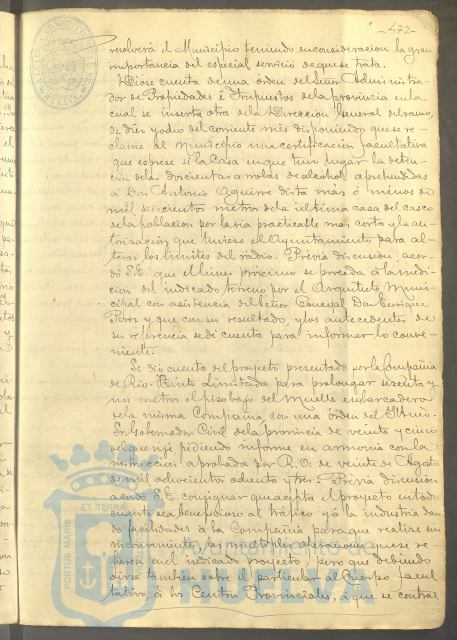 -472-
resolverá el Municipio teniendo en consideracion la gran
importancia del especial servicio de que se trata.
Dióse cuenta de una orden del Señor Administra-
dor de Propiedades é Impuestos de la provincia en la
cual se inserta otra de la Direccion General del ramo,
de diez y ocho del corriente mes disponiendo que se re-
clame al Municipio una certificacion facultativa
que esprese si la Casa en que tuvo lugar la deten-
cion de las doscientas arrobas de alcohol aprehendidas
á Don Antonio Aguirre dista más ó menos de
mil seiscientos metros de la ultima casa del casco
de la poblacion por la via practicable mas corta y la au-
torizacion que tuviese el Ayuntamiento para al-
terar los limites del radio. Prévia discusion, acor-
dó S.E. que el lunes proximo se proceda á la medi-
cion del indicado terreno por el Arquitecto Muni-
cipal con asistencia del Señor Concejal Don Enrique
Perez y que con su resultado, y los antecedentes de
su referencia se dé cuenta para informar lo conve-
niente.
Se dió cuenta del proyecto presentado por la Compañia
de Rio-Tinto Limitada para prolongar sesenta y
un metros el piso bajo del Muelle embarcadero
de la misma Compañia, con una órden del Iltmo.
Sr. Gobernador Civil de la provincia de veinte y cinco
del que rije pidiendo informe en armonia con la
instruccion aprobada por R.O. de veinte de Agosto
de mil ochocientos ochenta y tres. Prévia discusion
acordó S.E. consignar que acepta el proyecto en todo
cuanto sea beneficioso al tráfico y á la industria dan-
do facilidades á la Compañia para que realize sin
inconveniente las
en el indicado proyecto, pero que debiendo
oirse tambien sobre el particular al Cuerpo facul-
tativo, á los Centros Provinciales, á que se contrae
PORTUS MARIS
ET TERRAE
Ayuntamiento de
HUELVA